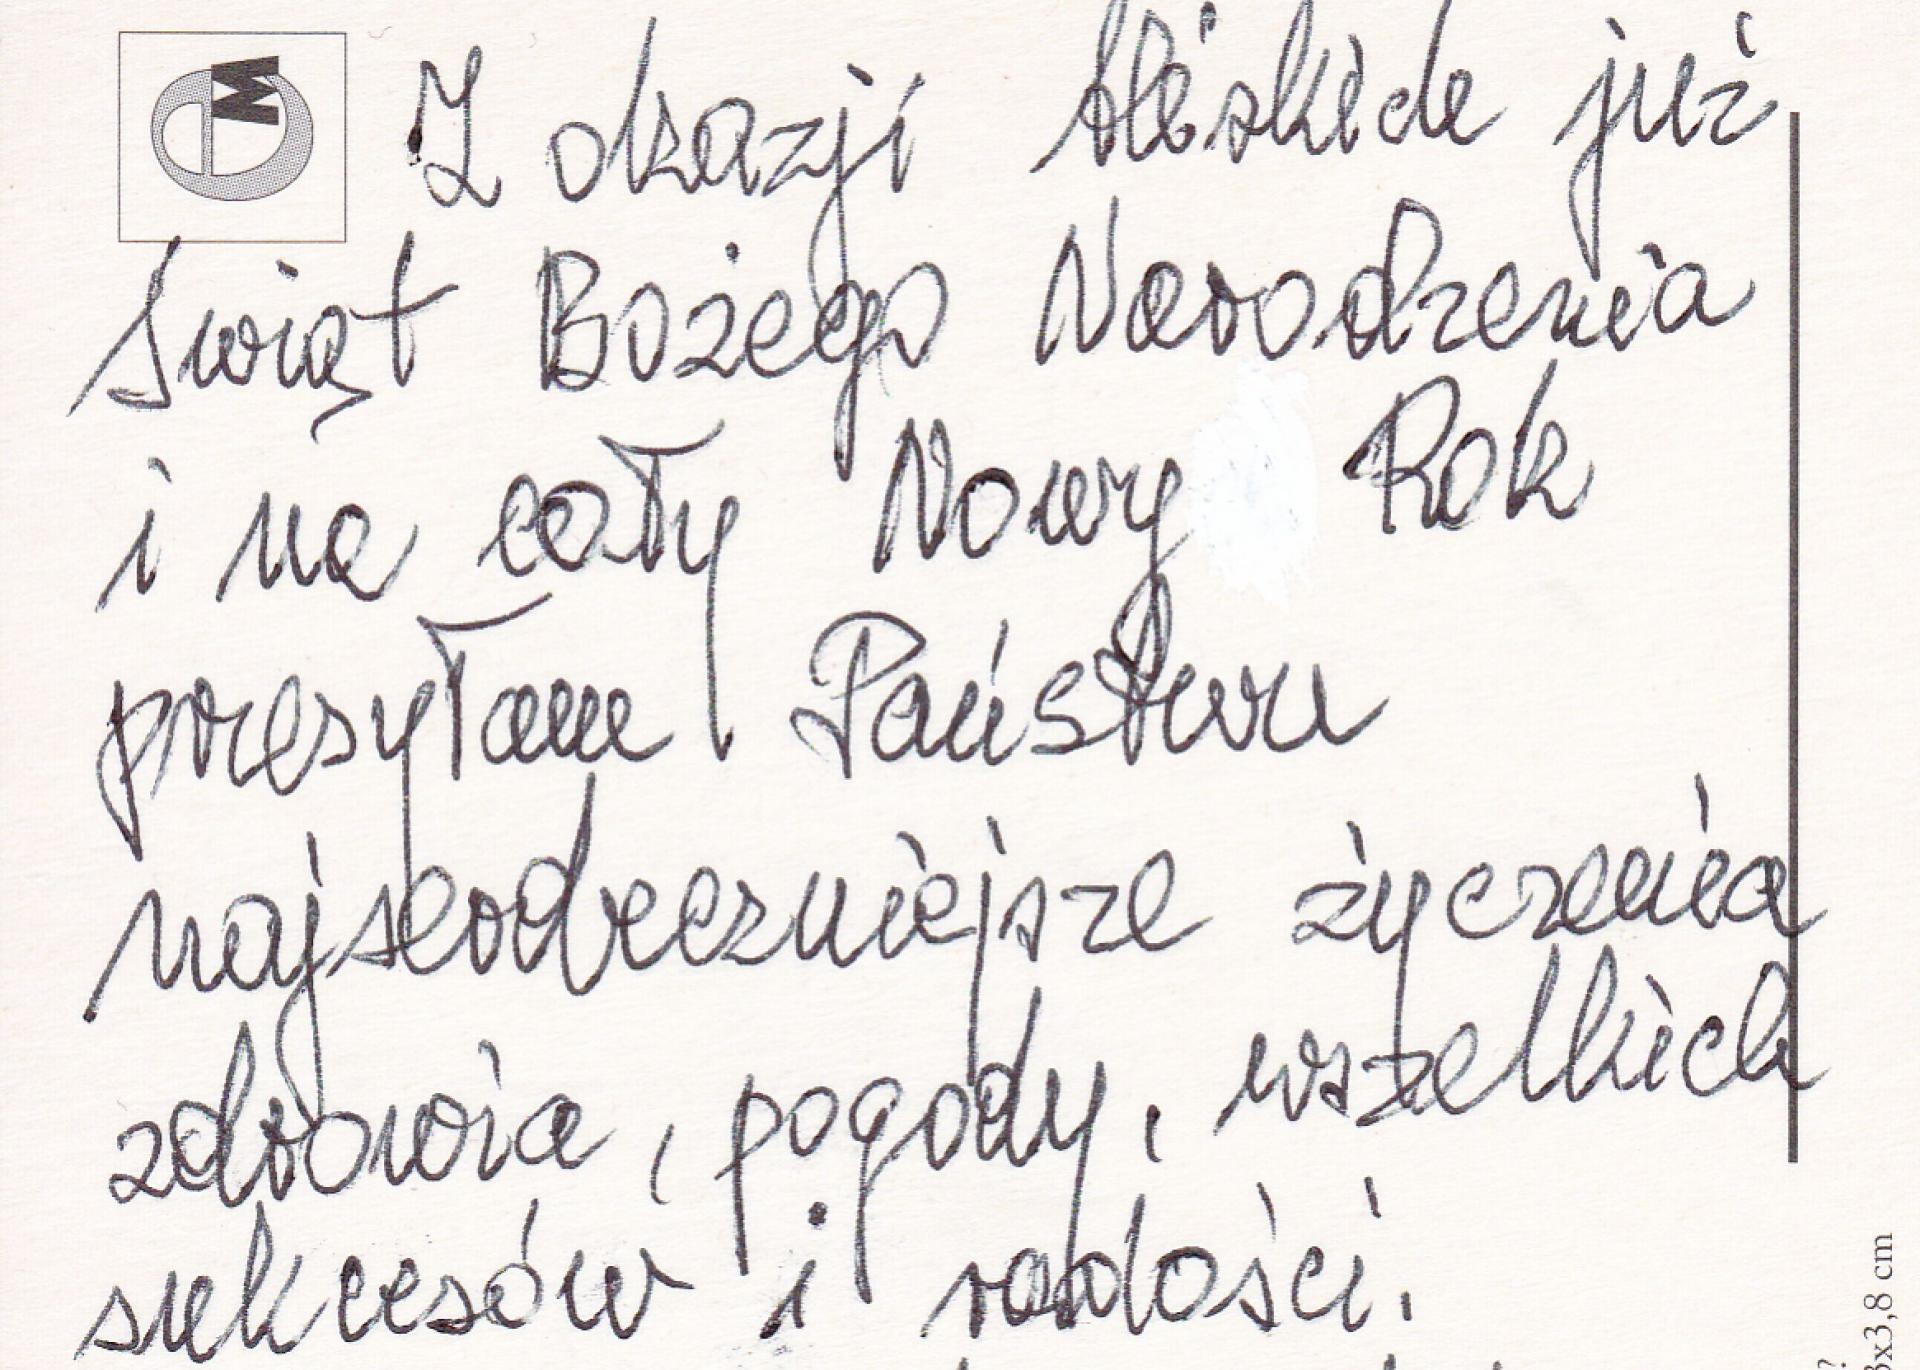 Z okazji bliskich już
Świąt Bożego Narodzenia
i na cały Nowy Rok
przesyłam Państwu
najserdeczniejsze życzenia
zdrowia, pogody, wszelkich
sukcesów i radości.
?
x3,8 cm